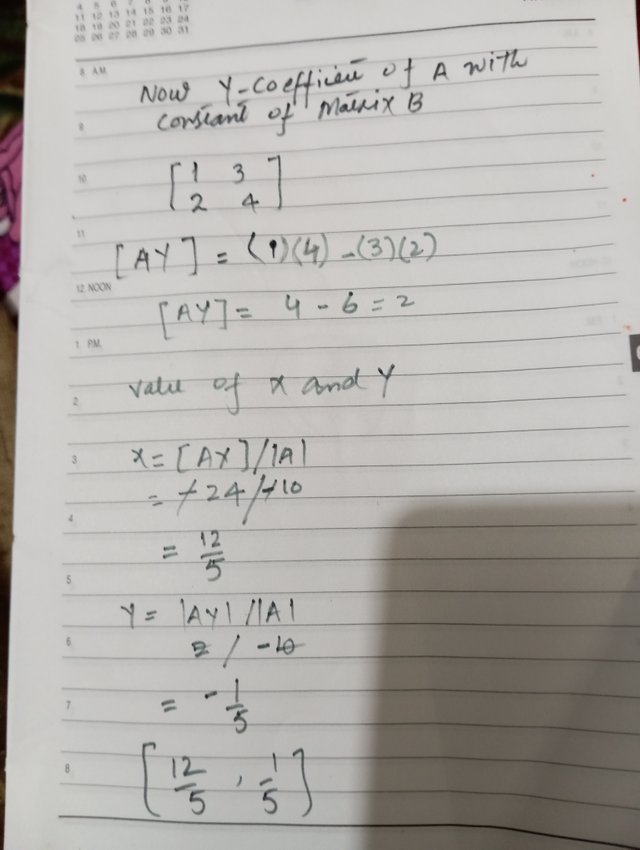 4 5 6 7 8 9 10
11 12 13 14 15 16 17
18 19 20 21 22 23 24
25 26 27 28 29 30 31
8 AM
Now Y-coefficient of A with
9
constant of Matrix B
10
[1 3
2 4]
11
[AY] = (1)(4) - (3)(2)
12 NOON
[AY] = 4 - 6 = 2
1 P.M.
value of x and Y
2
3
x = [AX]/|A|
= -24/-10
4
= 12/5
5
Y = |AY| / |A|
6
2 / -10
7
= - 1/5
8
[12/5 , 1/5]